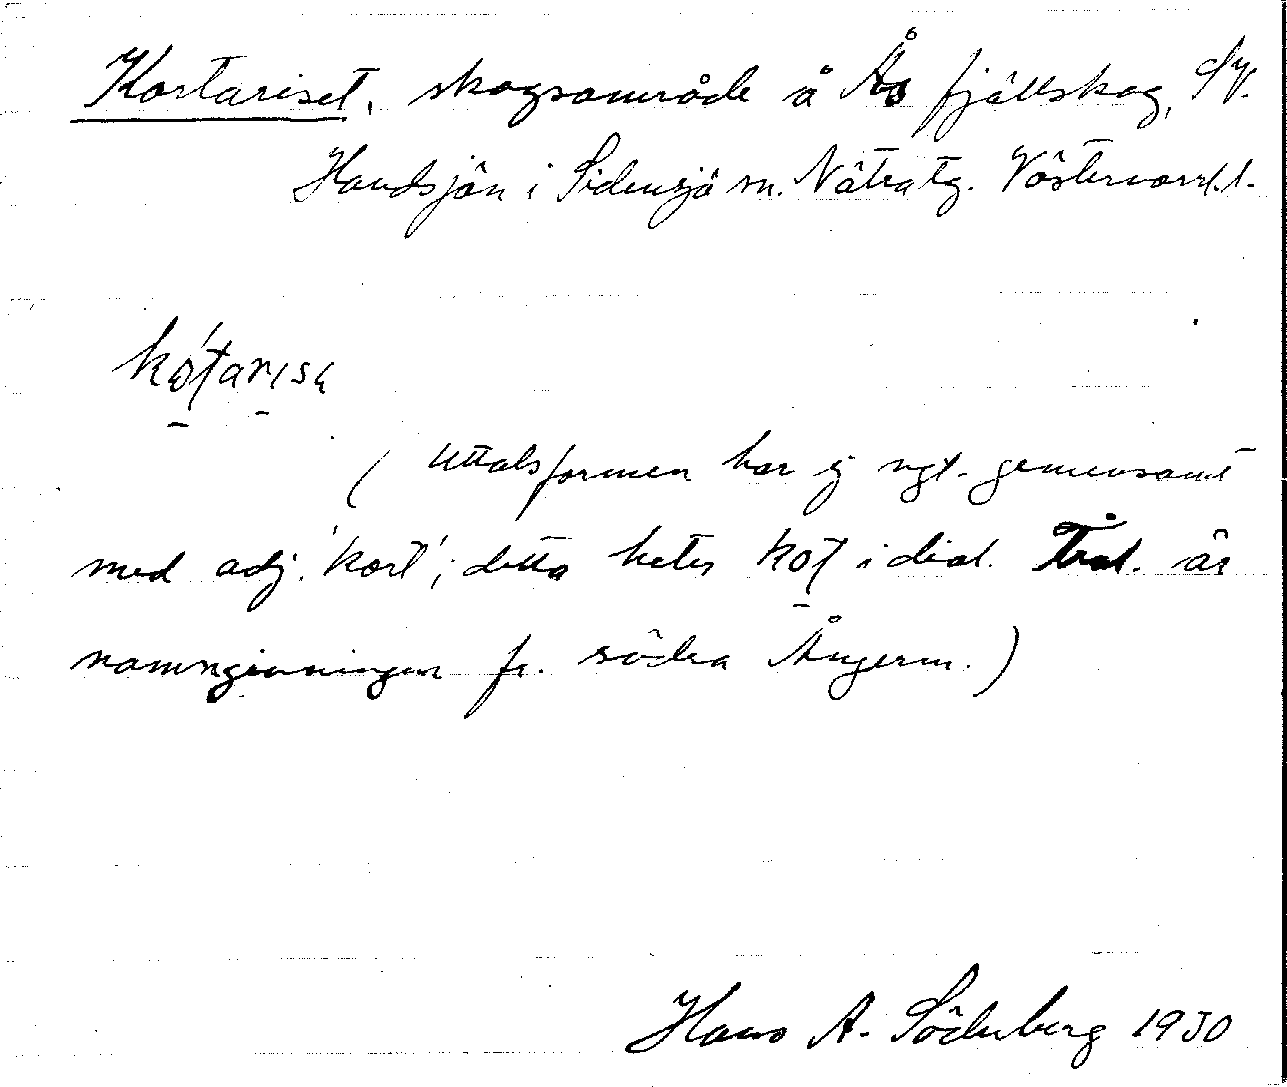 Kortariset, skogsområde å Ås fjällskog, SV.
Handsjön i Sidensjö sn. Nätra tg. Västernorrl. l.
kótarisa
( Uttalsformen har ej ngt. gemensamt
med adj. 'kort'; detta heter kot i dial. Trol. är
namngivningen fr. södra Ångerm.)
Hans A. Söderberg 1930